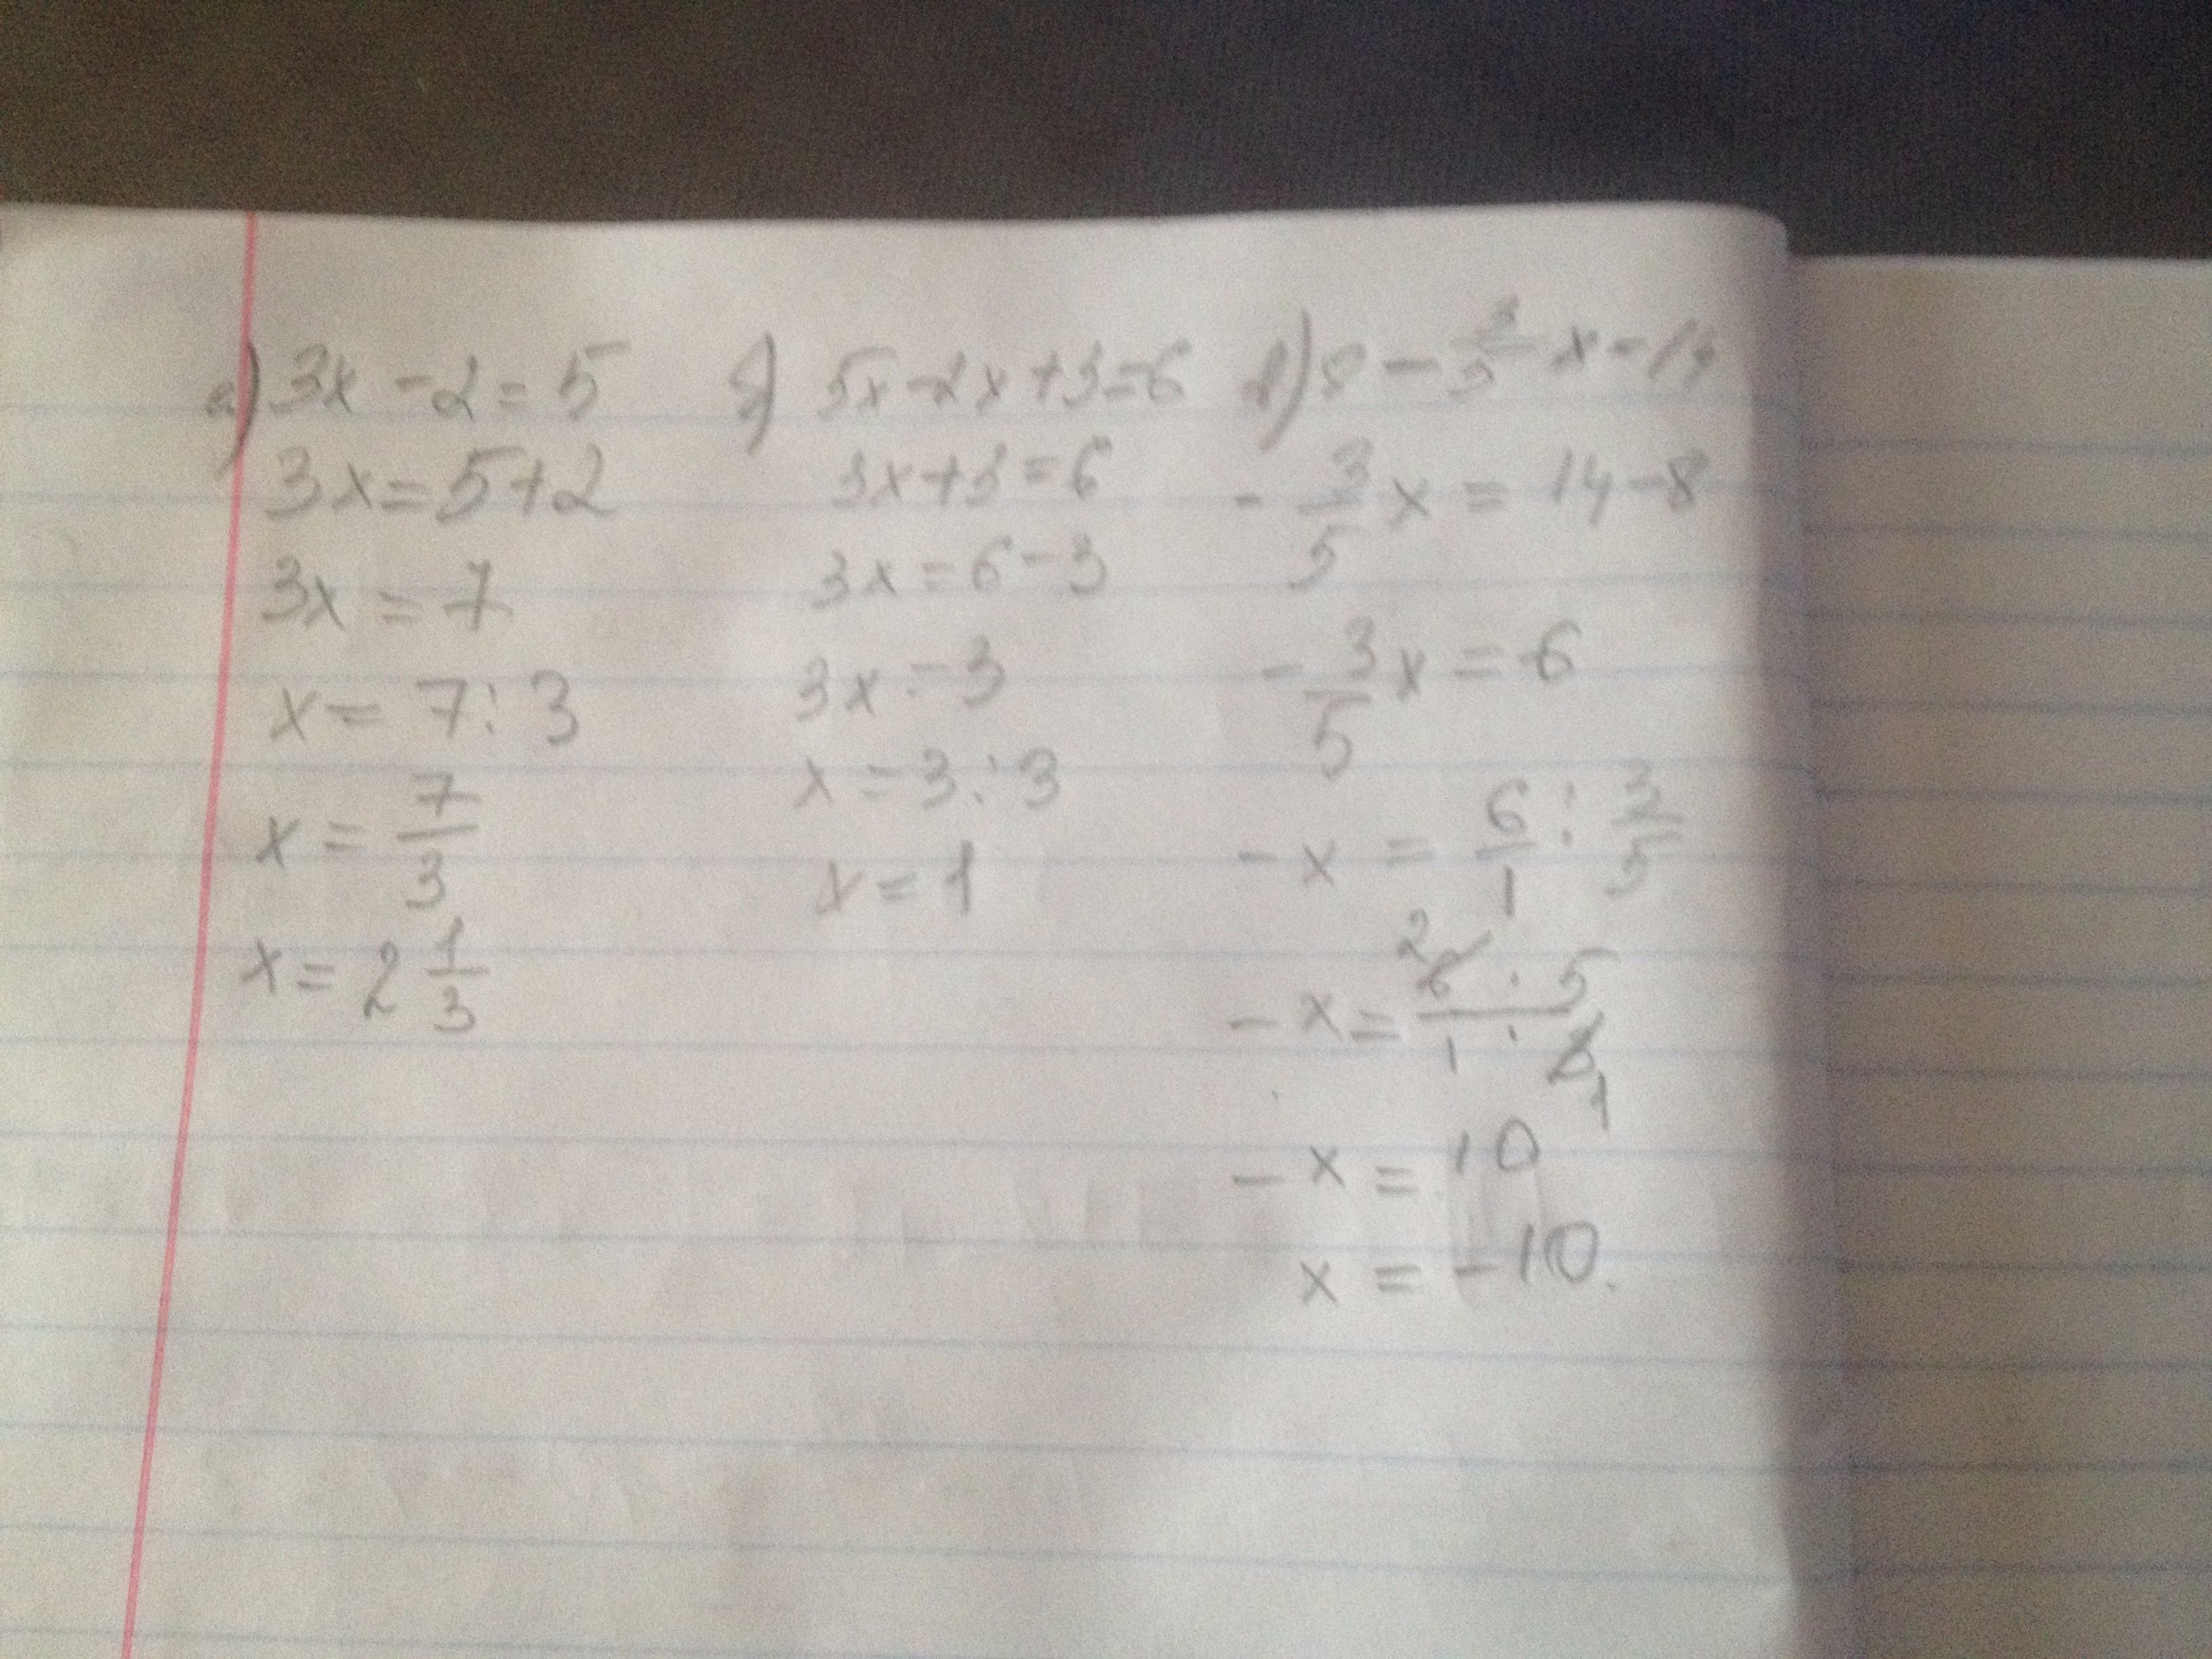 а) 3x - 2 = 5
3x = 5 + 2
3x = 7
x = 7 : 3
x = 7/3
x = 2 1/3
б) 5x - 2x + 3 = 6
3x + 3 = 6
3x = 6 - 3
3x = 3
x = 3 : 3
x = 1
в) 8 - 3/5 x = 14
- 3/5 x = 14 - 8
- 3/5 x = 6
- x = 6/1 : 3/5
2 1
- x = 6 · 5 / 1 · 3
- x = 10
x = -10.